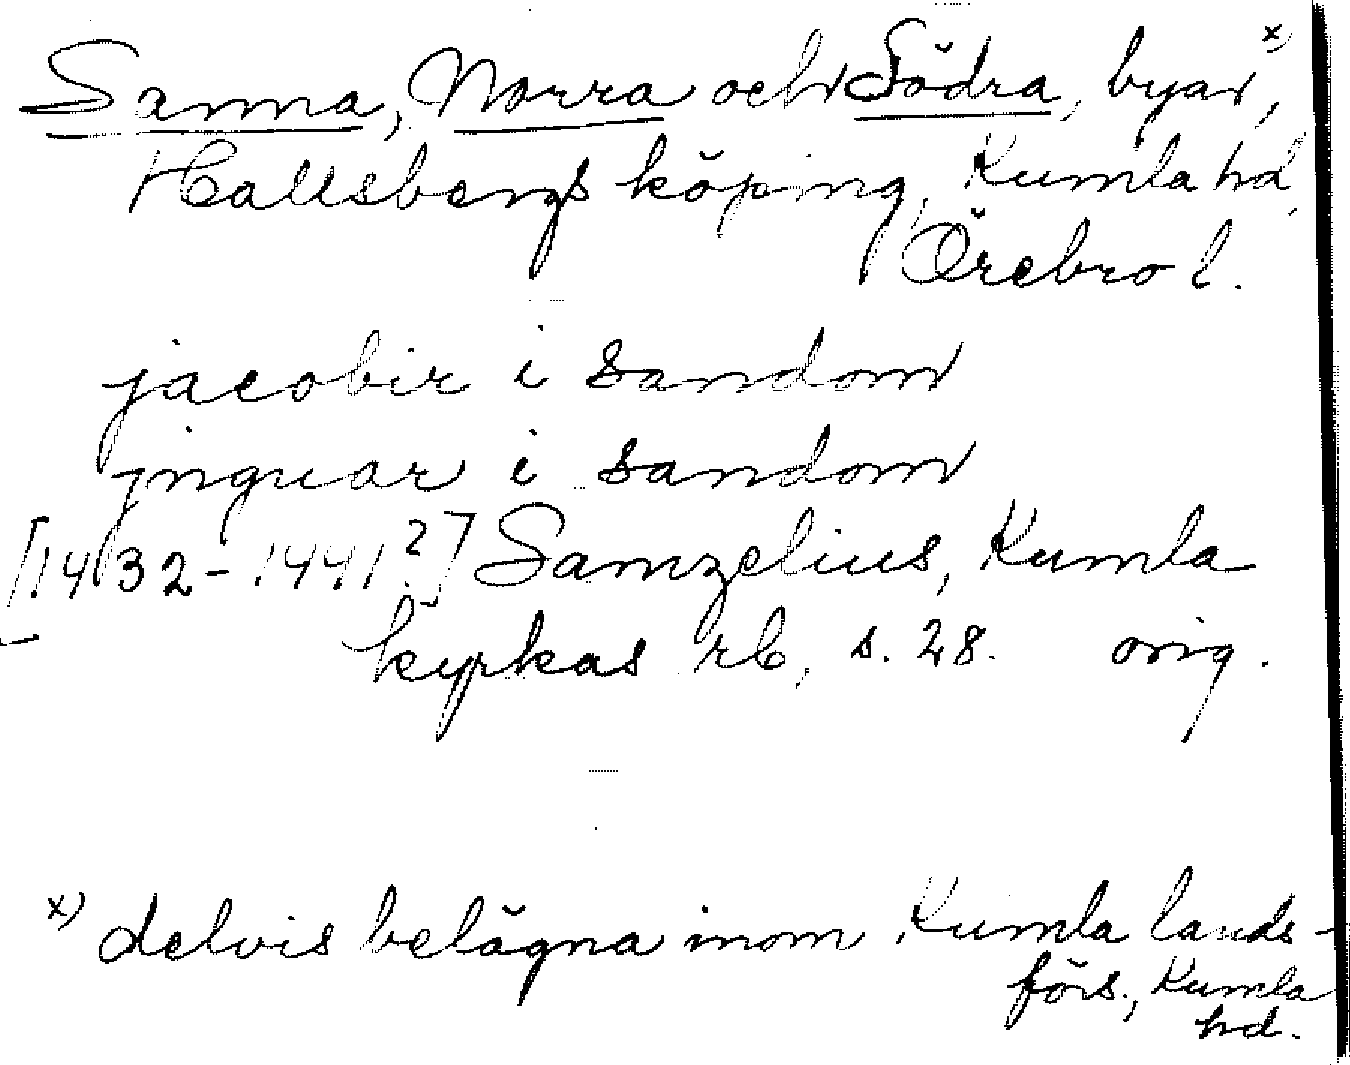 Sanna, Norra och Södra, byar x),
Hallsbergs köping, Kumla hd,
Örebro l.
jacobir i sandom
jnguar i sandom
[1432-1441?] Samzelius, Kumla
kyrkas rb, s. 28. orig.
x) delvis belägna inom Kumla lands-
förs., Kumla
hd.